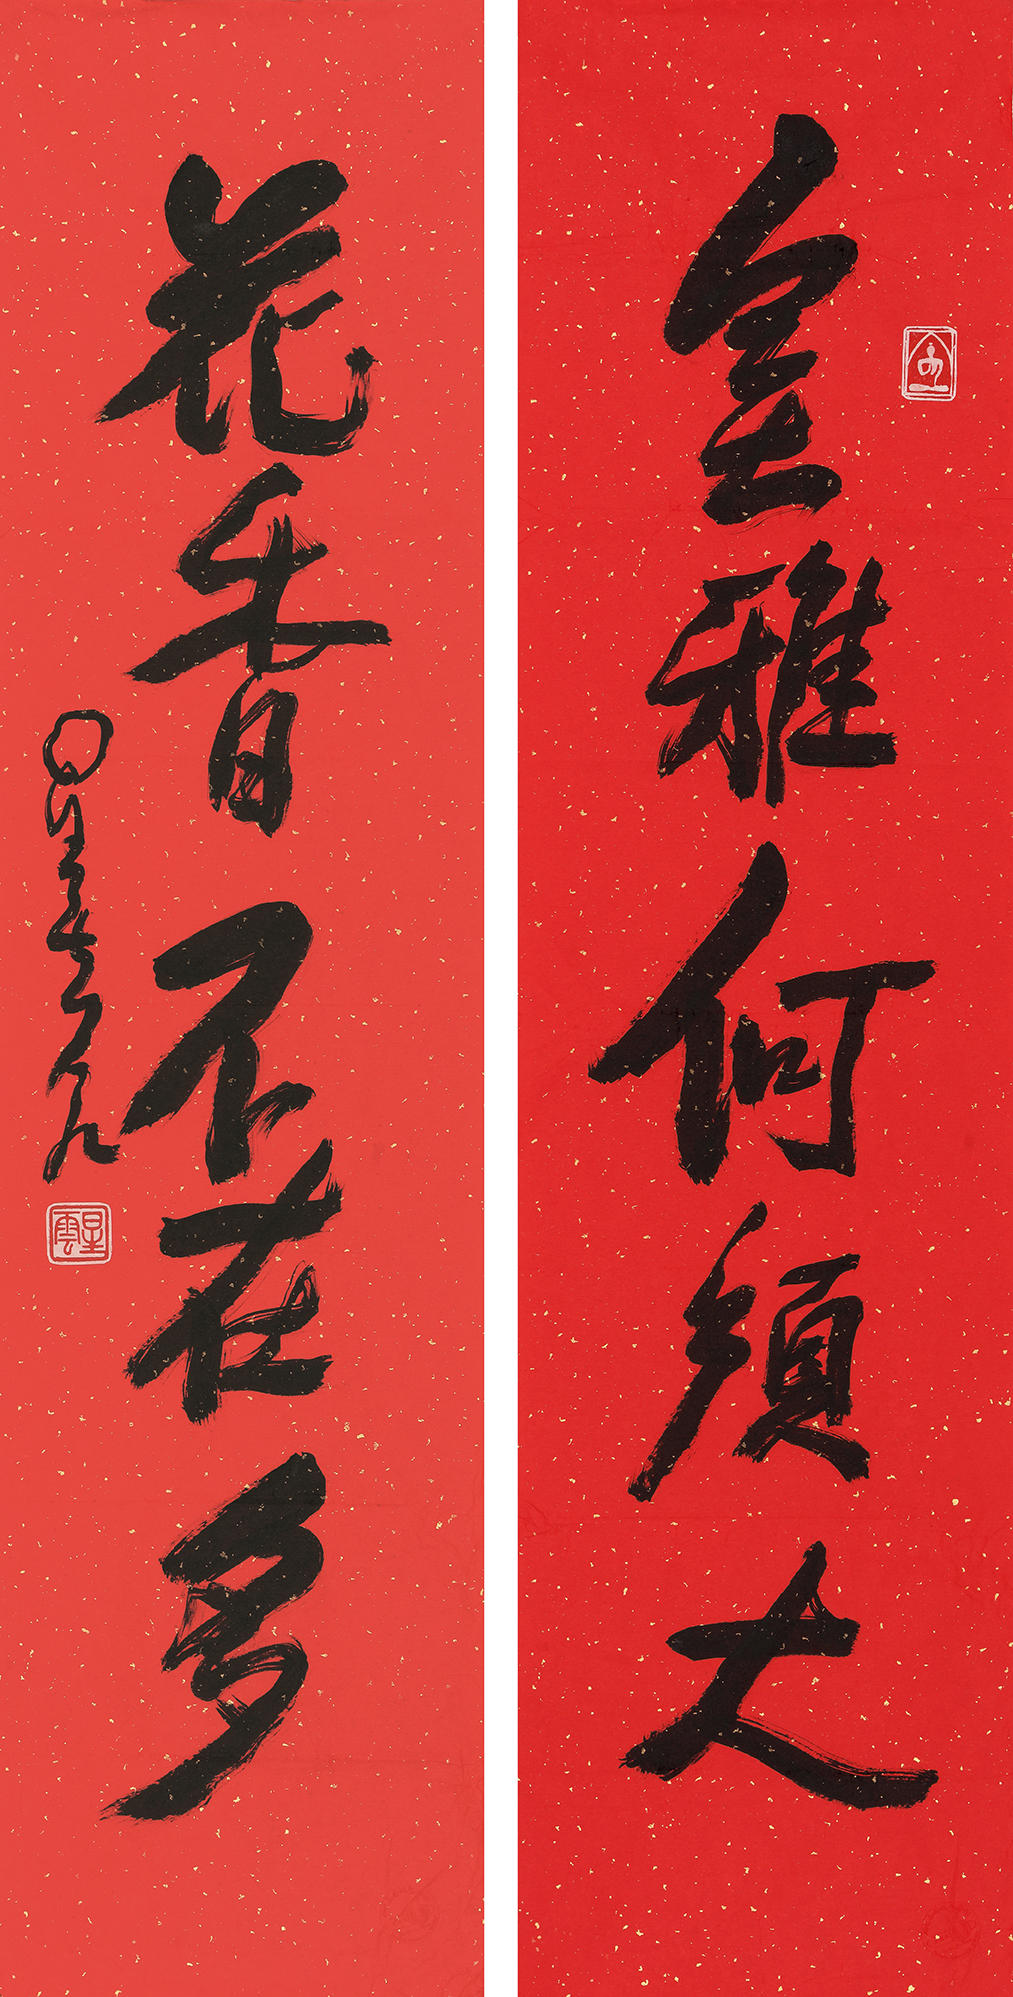 室雅何須大
花香不在多
星雲